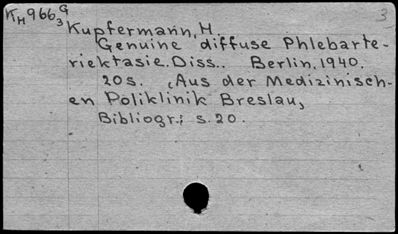 KH966₃G
3
Kupfermann, H.
Genuine diffuse Phlebarte-
riektasie. Diss.. Berlin, 1940.
20s. (Aus der Medizinisch-
en Poliklinik Breslau,
Bibliogr.; s.20.